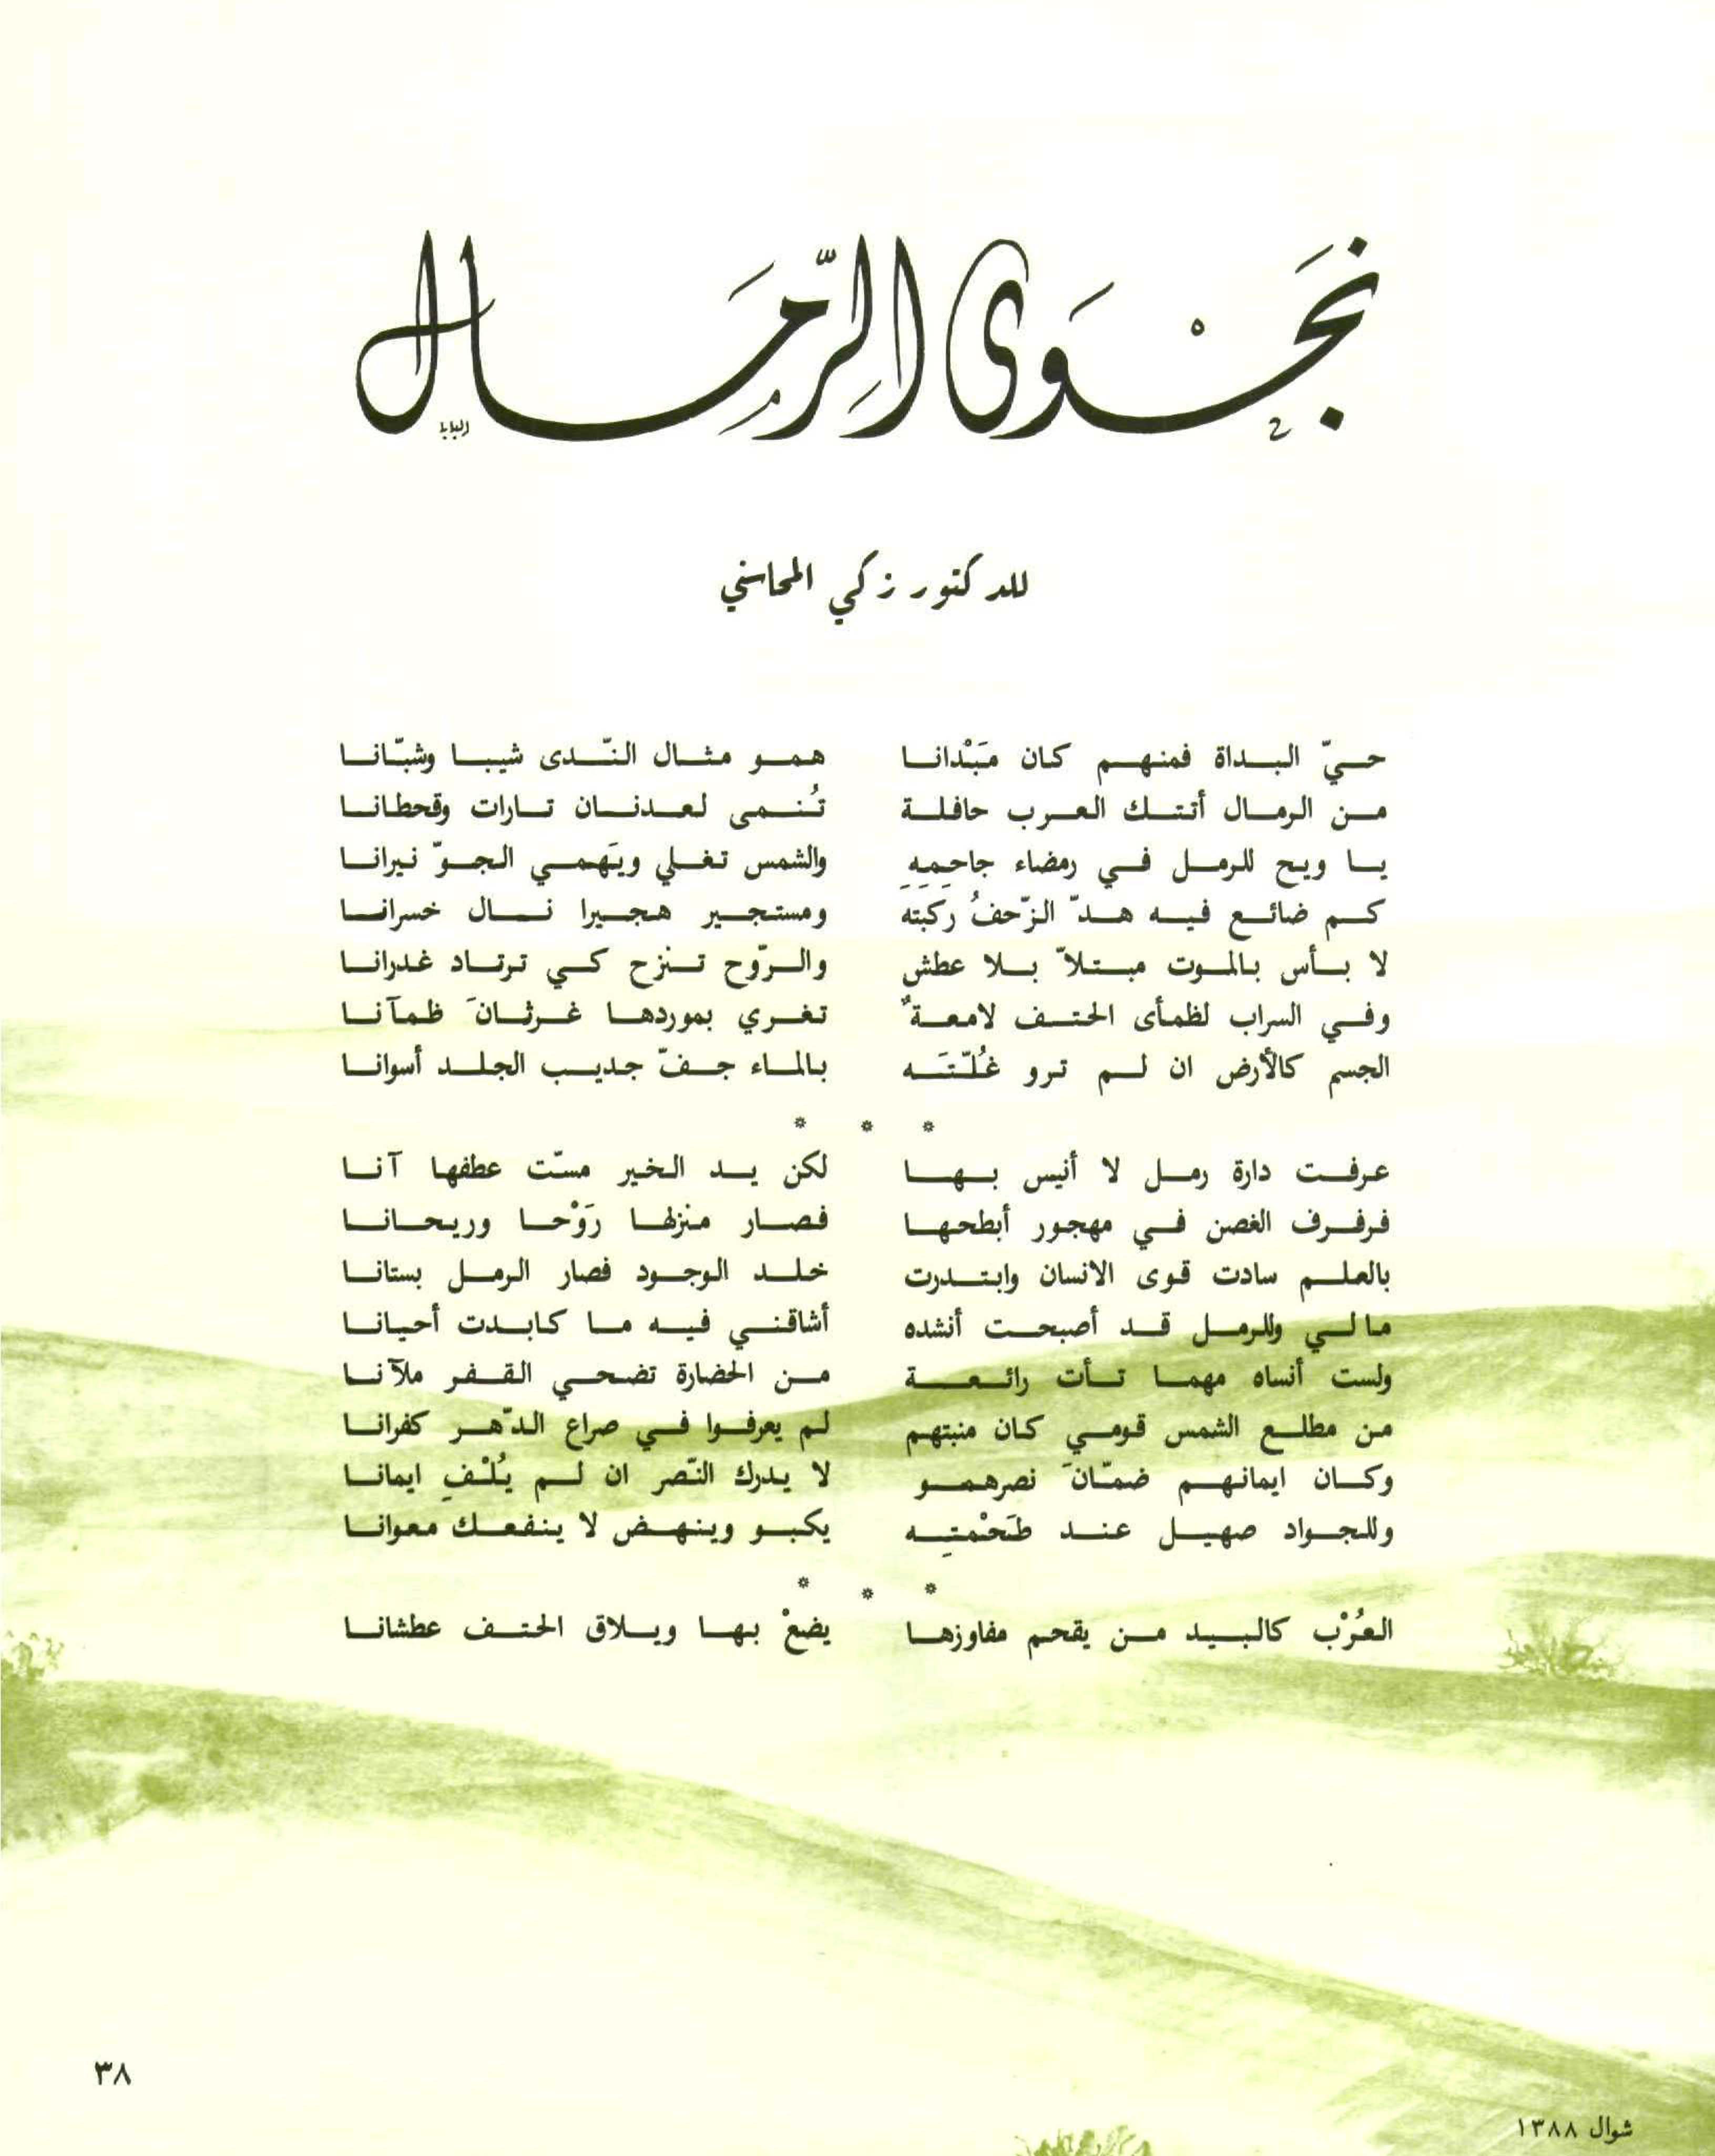 نَجْوَى الرِّمَال
للدكتور زكي المحاسني
حيّ البداة فمنهم كان مَبْدانا همو مثال النّدى شيبا وشبّانا
من الرمال أتتك العرب حافلة تُنمى لعدنان تارات وقحطانا
يا ويح للرمل في رمضاء جاحمه والشمس تغلي ويَهمي الجوّ نيرانا
كم ضائع فيه هدّ الزّحفُ رَكبَتَه ومستجير هجيرا نال خسرانا
لا بأس بالموت مبتلاّ بلا عطش والرّوح تنزح كي ترتاد غدرانا
وفي السراب لظمأى الحتف لامعةٌ تغري بموردها غرثانَ ظمآنا
الجسم كالأرض ان لم ترو غُلّتَه بالماء جفّ جديب الجلد أسوانا
* * *
عرفت دارة رمل لا أنيس بها لكن يد الخير مسّت عطفها آنا
فرفرف الغصن في مهجور أبطحها فصار منزلها رَوْحا وريحانا
بالعلم سادت قوى الانسان وابتدرت خلد الوجود فصار الرمل بستانا
ما لي وللرمل قد أصبحت أنشده أشاقني فيه ما كابدت أحيانا
ولست أنساه مهما تأت رائعة من الحضارة تضحي القفر ملآنا
من مطلع الشمس قومي كان منبتهم لم يعرفوا في صراع الدّهر كفرانا
وكان ايمانهم ضمّانَ نصرهمو لا يدرك النّصر ان لم يُلْفِ ايمانا
وللجواد صهيل عند طَحْمتِه يكبو وينهض لا ينفعك معوانا
* * *
العُرْب كالبيد من يقحم مفاوزها يضعْ بها ويلاق الحتف عطشانا
٣٨
شوال ١٣٨٨